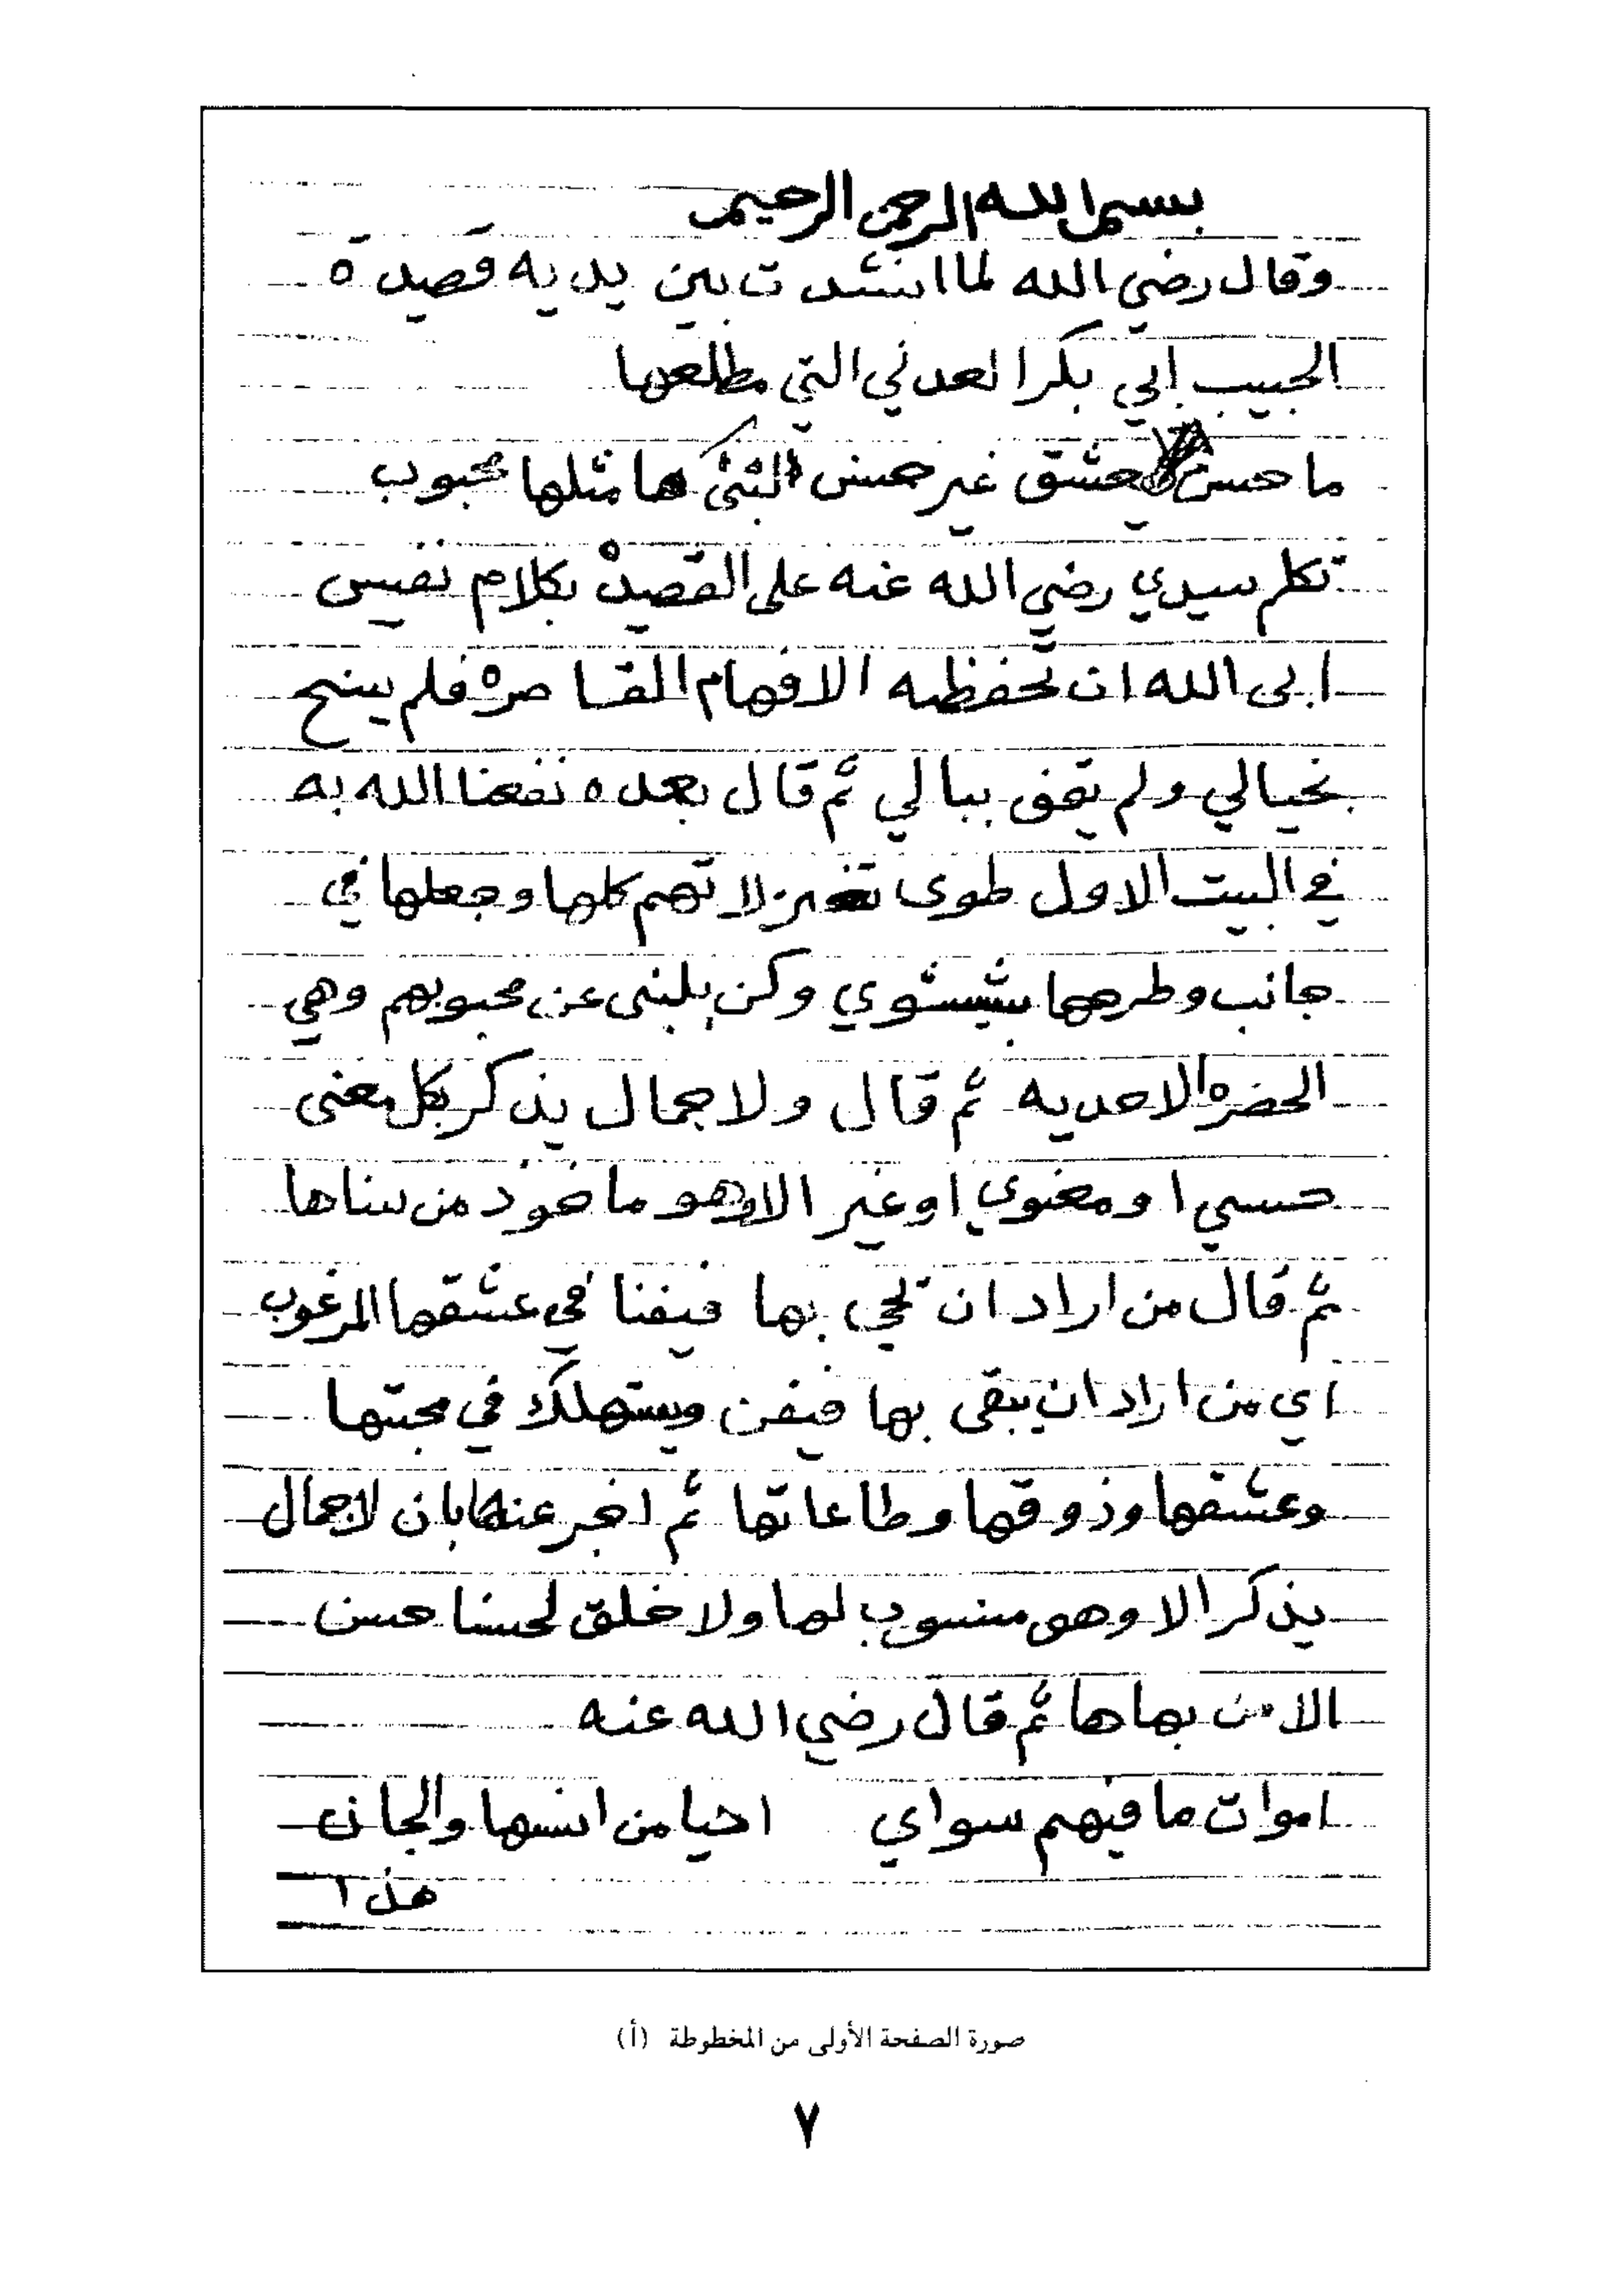 بسم الله الرحمن الرحيم
وقال رضي الله لما انشدت بين يديه قصيده
الحبيب ابي بكر العدني التي مطلعها
ما حسن يعشق غير حسن ها مثلها محبوب
تكلم سيدي رضي الله عنه على القصيد بكلام نفيس
ابى الله ان تحفظه الافهام القاصره فلم ينح
بخيالي ولم يقف ببالي ثم قال بعده نفعنا الله به
في البيت الاول طوى تغزلاتهم كلها وجعلها في
جانب وطرحها وكن عن محبوبهم وهي
الحضره الاحديه ثم قال ولا جمال يذكر بكل معنى
حسي او معنوي او غير الا وهو ماخوذ من سناها
ثم قال من اراد ان يحي بها فيفنا في عشقها المرغوب
اي من اراد ان يبقى بها فيفن ويستهلك في محبتها
وعشقها وذوقها وطاعاتها ثم اخبر عنها بان لا جمال
يذكر الا وهو منسوب لها ولا خلق لحسنا حسن
الا من بهاها ثم قال رضي الله عنه
اموات ما فيهم سواي احيا من انسها والجان
هذا
صورة الصفحة الأولى من المخطوطة (أ)
٧